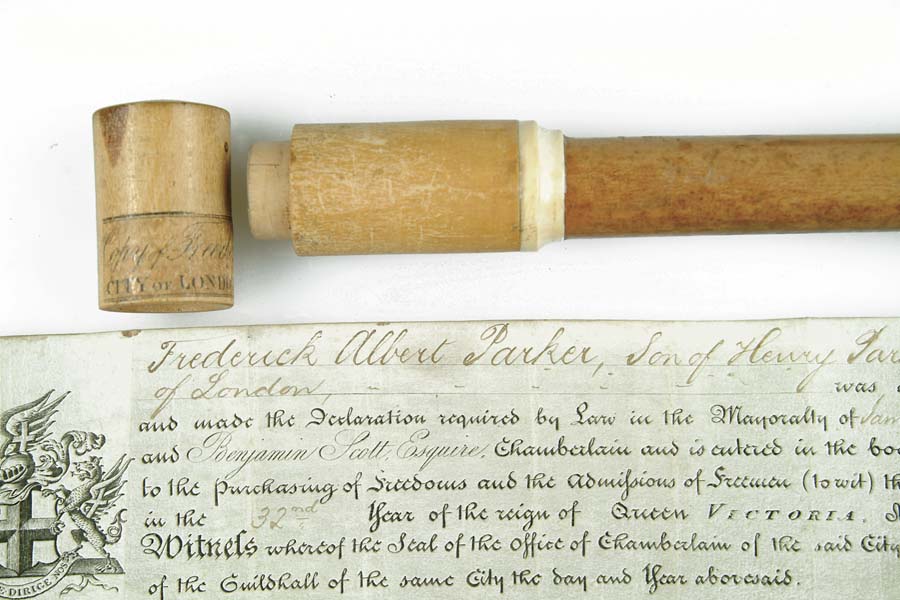 Copy of
CITY OF LOND
Frederick Albert Parker, Son of Henry Par
of London, was
and made the Declaration required by Law in the Mayoralty of
and Benjamin Scott, Esquire, Chamberlain and is entered in the boo
to the Purchasing of Freedoms and the Admissions of Freemen (to wit) th
in the 32nd Year of the reign of Queen VICTORIA.
Witness whereof the Seal of the Office of Chamberlain of the said City
of the Guildhall of the same City the day and Year aboresaid.
E DIRIGE NOS